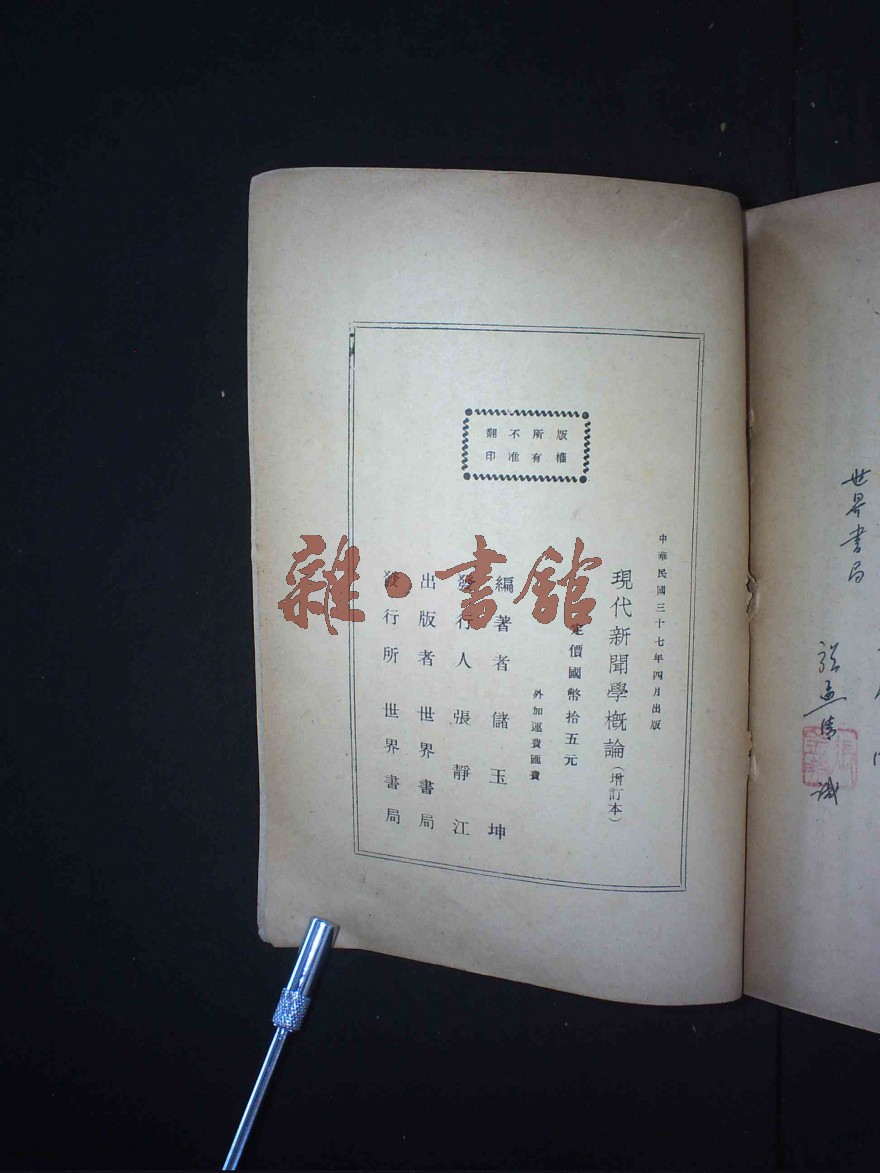 版權所有不准翻印
中華民國三十七年四月出版
現代新聞學概論（增訂本）
定價國幣拾五元
外加運費匯費
編著者 儲玉坤
發行人 張靜江
出版者 世界書局
發行所 世界書局
雜·書館
世界書局